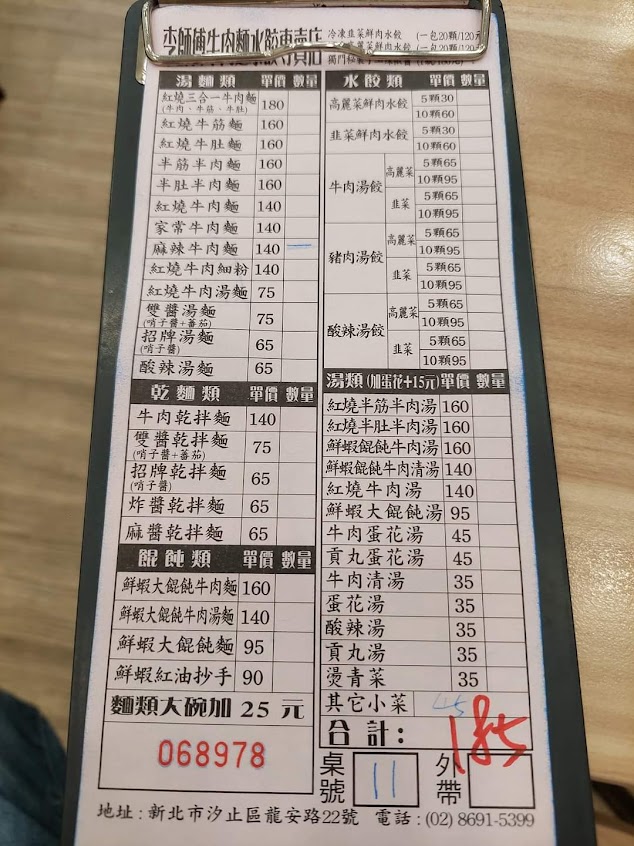 李師傅牛肉麵水餃專賣店
冷凍韭菜鮮肉水餃 (一包20顆/120元
(一包20顆/120元
湯麵類 單價 數量
紅燒三合一牛肉麵 180
(牛肉、牛筋、牛肚)
紅燒牛筋麵 160
紅燒牛肚麵 160
半筋半肉麵 160
半肚半肉麵 160
紅燒牛肉麵 140
家常牛肉麵 140
麻辣牛肉麵 140 一
紅燒牛肉細粉 140
紅燒牛肉湯麵 75
雙醬湯麵 75
(哨子醬+蕃茄)
招牌湯麵 65
(哨子醬)
酸辣湯麵 65
乾麵類 單價 數量
牛肉乾拌麵 140
雙醬乾拌麵 75
(哨子醬+蕃茄)
招牌乾拌麵 65
(哨子醬)
炸醬乾拌麵 65
麻醬乾拌麵 65
餛飩類 單價 數量
鮮蝦大餛飩牛肉麵 160
鮮蝦大餛飩牛肉湯麵 140
鮮蝦大餛飩麵 95
鮮蝦紅油抄手 90
麵類大碗加 25 元
068978
水餃類 單價 數量
高麗菜鮮肉水餃 5顆30
10顆60
韭菜鮮肉水餃 5顆30
10顆60
牛肉湯餃 高麗菜 5顆65
10顆95
韭菜 5顆65
10顆95
豬肉湯餃 高麗菜 5顆65
10顆95
韭菜 5顆65
10顆95
酸辣湯餃 高麗菜 5顆65
10顆95
韭菜 5顆65
10顆95
湯類(加蛋花+15元) 單價 數量
紅燒半筋半肉湯 160
紅燒半肚半肉湯 160
鮮蝦餛飩牛肉湯 160
鮮蝦餛飩牛肉清湯 140
紅燒牛肉湯 140
鮮蝦大餛飩湯 95
牛肉蛋花湯 45
貢丸蛋花湯 45
牛肉清湯 35
蛋花湯 35
酸辣湯 35
貢丸湯 35
燙青菜 35
其它小菜 45
合計: 185
桌號 11 外帶
地址:新北市汐止區龍安路22號 電話:(02) 8691-5399